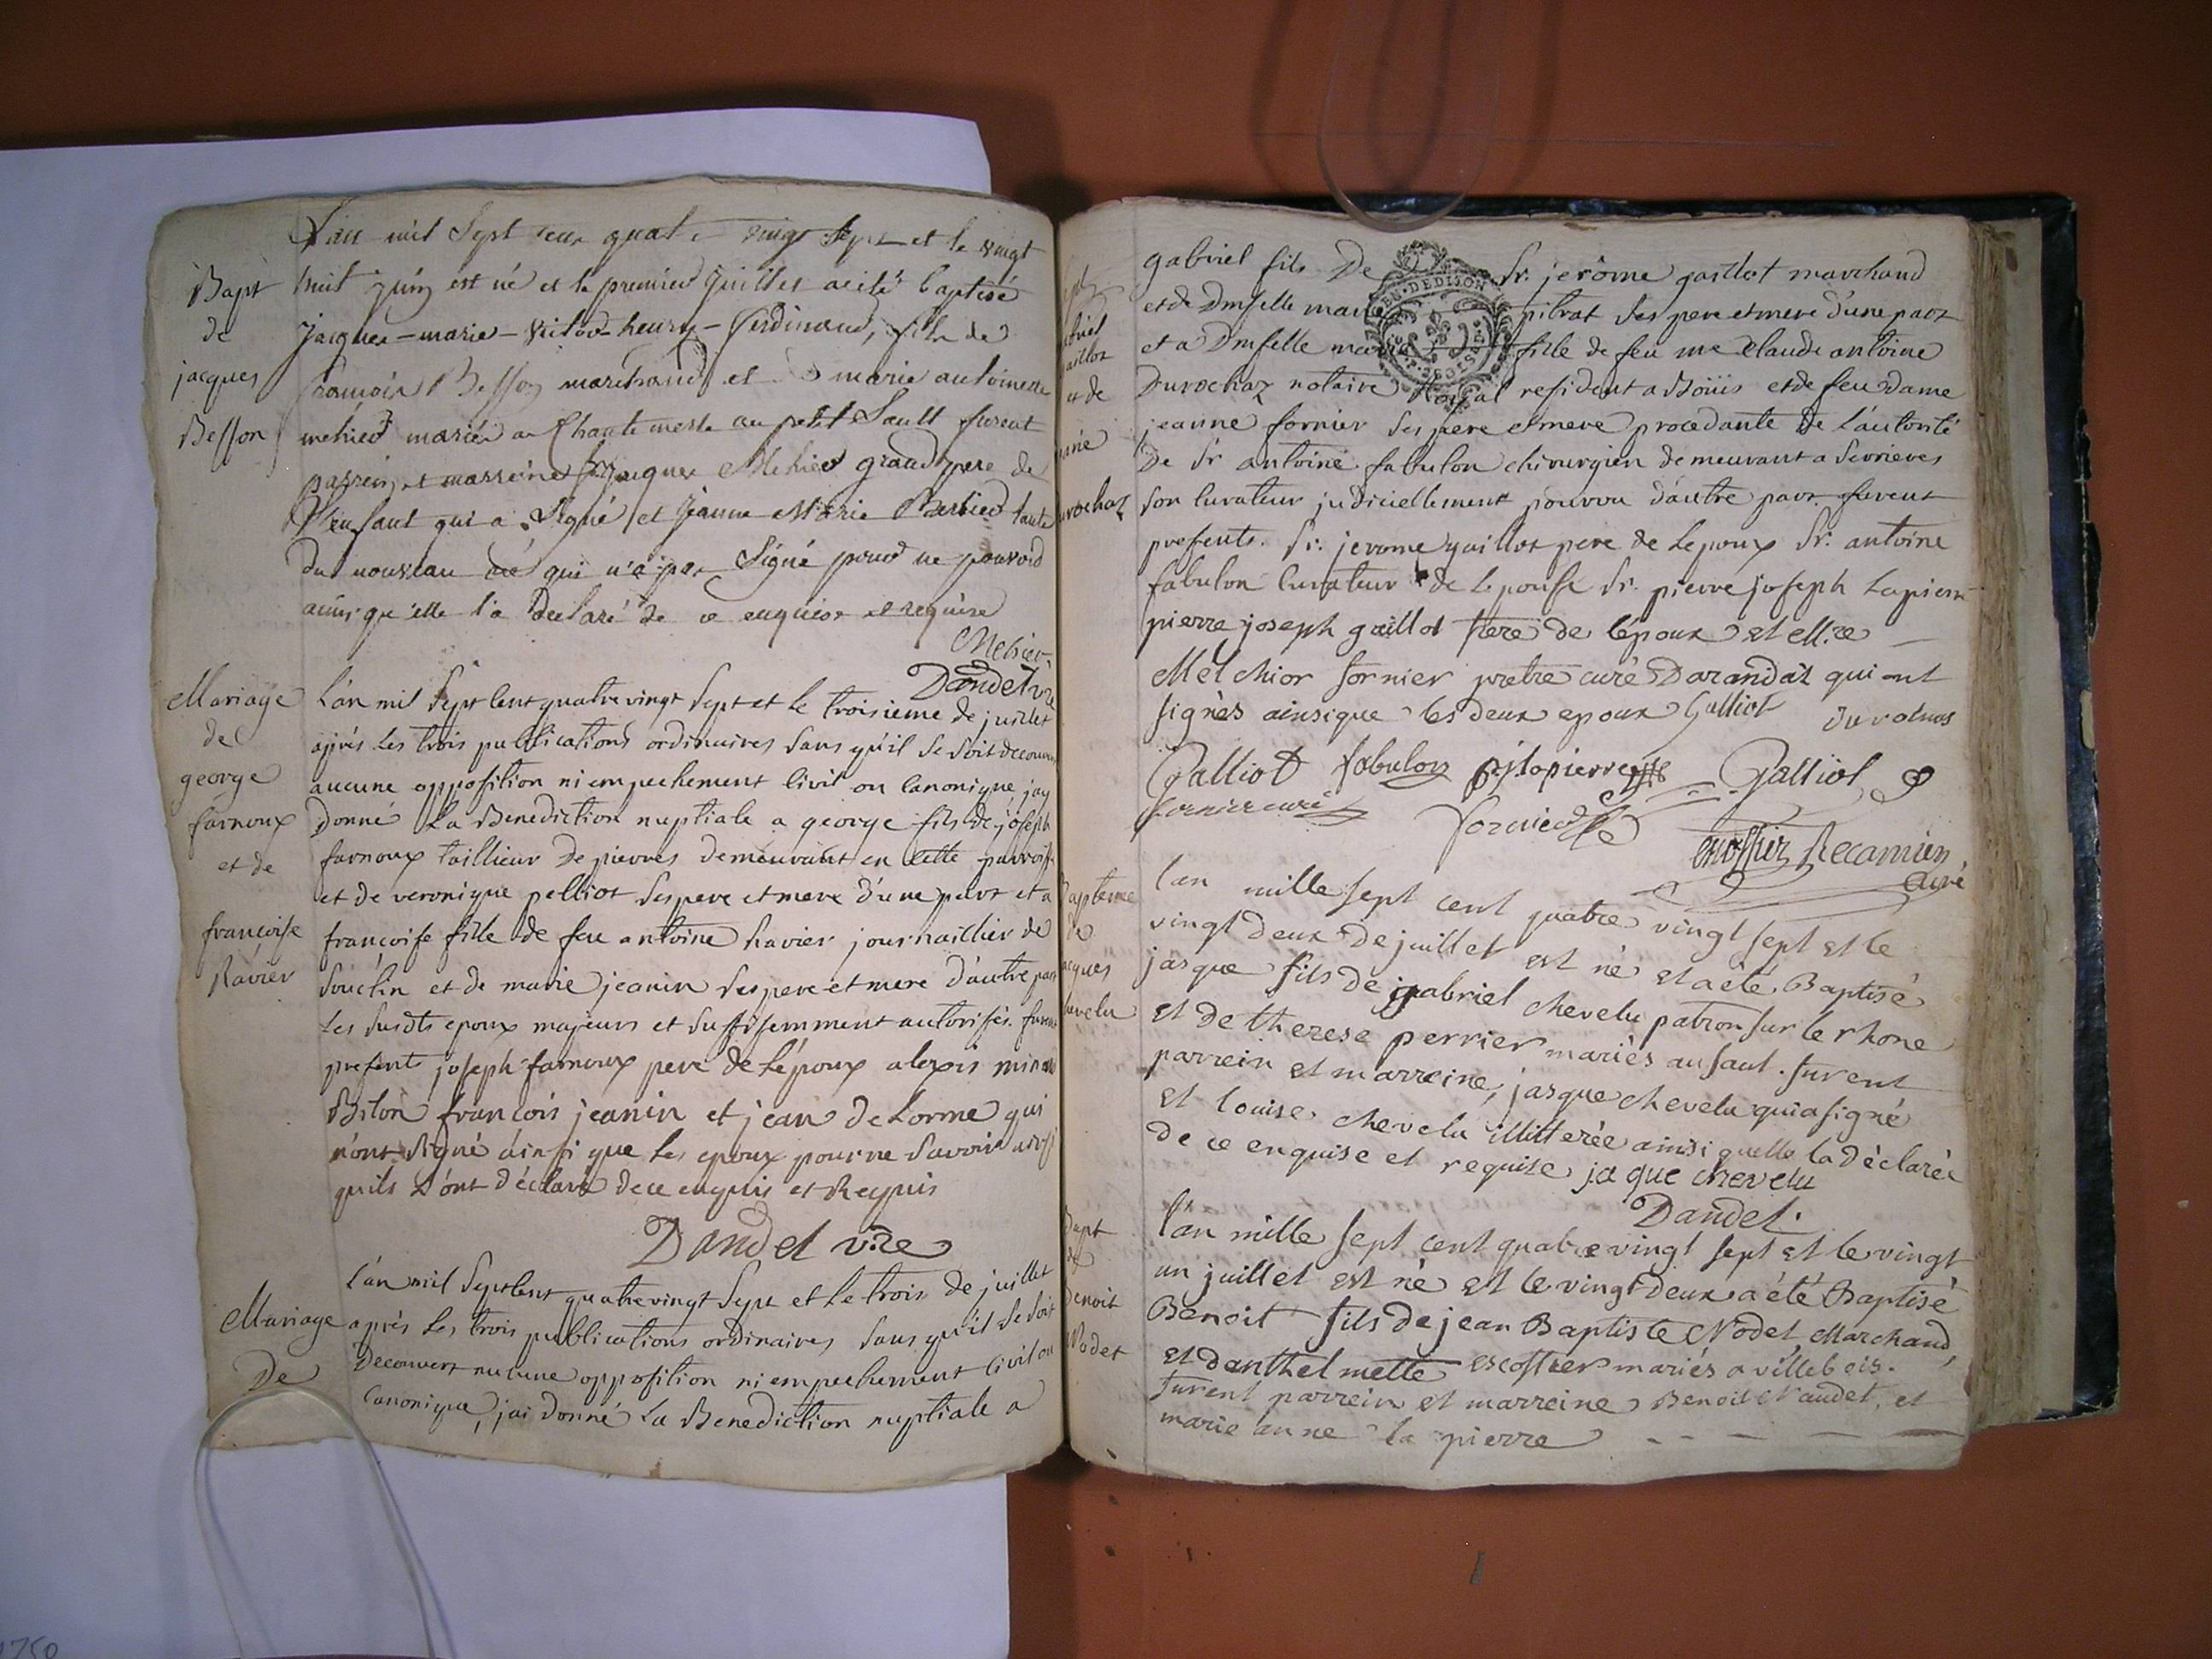 L'an mil Sept cent quatre vingt Sept et le vingt
Bapt
de
jacques
Besson
huit juin est né et le premier juillet a eté baptisé
jacques-marie-victor-henry-ferdinand, fils de
françois Besson marchand et D marie antoinette
mehier mariés a Chantemerle au petit Sault furent
parrein et marreine jacques Mehier grand pere de
l'enfant qui a Signé et jeanne Marie Barbier tante
du nouveau né qui n'a pas Signé pour ne pouvoir
ainsi qu'elle l'a declaré de ce enquise et requise
Mehier
Dandel vre
Mariage
de
george
farnoux
et de
françoise
Ravier
L'an mil Sept Cent quatre vingt Sept et le troisieme de juillet
aprés les trois publications ordinaires Sans qu'il Se Soit decouvert
aucune opposition ni empechement Civil ou Canonique jay
donné La Benediction nuptiale a george fils de joseph
farnoux taillieur de pierres demeurant en cette parroisse
et de veronique pelliot Ses pere et mere d'une part et a
françoise fille de feu antoine havier journaillier de
Souclin et de marie jeanin Ses pere et mere d'autre part
Les Susdts epoux majeurs et Suffisemment autorisés. furent
presents joseph farnoux pere de L'époux alexis
Biton françois jeanin et jean de Lorme qui
n'ont Signé ainsi que Les epoux pour ne Savoir ainsi
qu'ils L'ont déclaré de ce enquis et Requis
Dandel vre
Mariage
De
L'an mil Sept Cent quatre vingt Sept et Le trois de juillet
aprés Les trois publications ordinaires Sans qu'il Se Soit
Decouvert aucune opposition ni empechement Civil ou
Canonique, j'ai donné La Benediction nuptiale a
gabriel fils De Sr. jerôme gaillot marchand
et de Dmselle marie pitrat Ses pere et mere d'une part
et a Dmselle marie fille de feu me Claude antoine
Durochaz notaire Royal resident a Boüis et de feu Dame
jeanne fornier Ses pere et mere procedante de L'autorité
De Sr antoine fabulon chirurgien demeurant a Serrieres
Son Curateur judiciellement pourvu d'autre part furent
presents. Sr. jerome gaillot pere de Lepoux Sr. antoine
fabulon Curateur de Lepouse Sr. pierre joseph Lapierre
pierre joseph gaillot frere de l'époux et Mre
Melchior fornier pretre curé Darandat qui ont
signés ainsi que les deux epoux Galliot
Galliot fabulon pjlapierre Galliot
fornier curé
Recamier
Curé
EN · DEDISON
Bapteme
de
jacques
chevelu
l'an mille sept cent quatre vingt sept et le
vingt deux de juillet est né et a été Baptisé
jasque fils de gabriel chevelu patron sur le rhone
et de therese perrier mariés au saut. furent
parrein et marreine, jasque chevelu qui a signé
et louise chevelu illitterée ainsi quelle la déclarée
de ce enquise et requise ja que chevelu
Dandel.
Bapt
de
Benoit
Nodet
l'an mille sept cent quatre vingt sept et le vingt
un juillet est né et le vingt deux a été Baptisé
Benoit fils de jean Baptiste Nodet, Marchand,
et danthelmette escoffier mariés a villebois.
furent parrein et marreine Benoit Naudet, et
marie anne la pierre